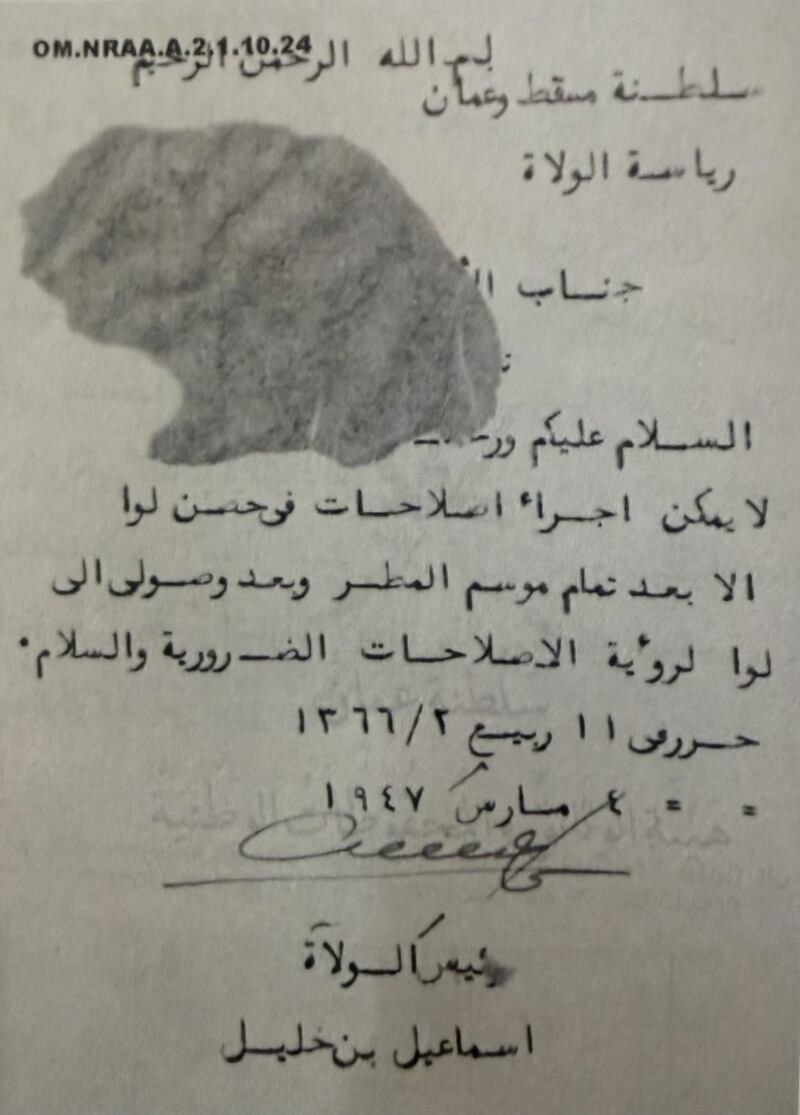 OM.NRAA.A.2.1.10.24
بسم الله الرحمن الرحيم
سلطنة مسقط وعمان
رياسة الولاة
جناب
السلام عليكم
لا يمكن اجراء اصلاحات في حصن لوا
الا بعد تمام موسم المطر وبعد وصولى الى
لوا لرؤية الاصلاحات الضرورية والسلام.
حرر فى ١١ ربيع ١٣٦٦/٢
" " ٤ مارس ١٩٤٧
رئيس الولاة
اسماعيل بن خليل